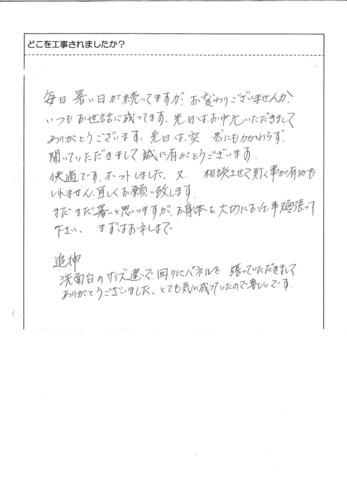 どこを工事されましたか？
毎日暑い日が続いてますが、お変わりございませんか?
いつもお世話に成ってます。先日はお中元いただきまして
ありがとうございます。先日は、突 にもかかわらず、
聞いていただきまして誠に有がとうございます。
快適です。ホットしました。又 相談させて貰く事が有かも
しれません。宜しくお願い致します
まだまだ暑いと思いますが、お身体を大切にお仕事頑張って
下さい。まずはお礼まで
追伸
洗面台のサイズ違いで回りにパネルを張っていただきまして
ありがとうございました。とても気に成っていたので嬉しいです。